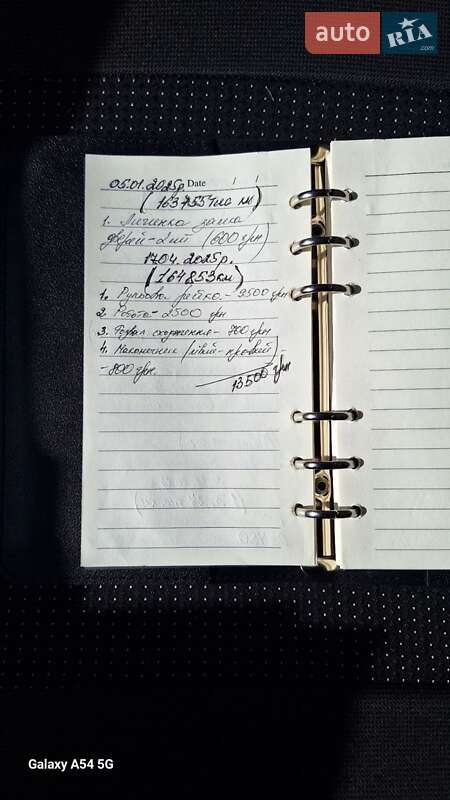 auto RIA
.com
05.01.2025р. Date / /
(163755 км)
1. Личинка замка
дверей- (600 грн)
17.04.2025р.
(164853км)
1. Рульова рейка - 9500 грн
2. Робота - 2500 грн
3. Розвал сходження - 700 грн
4. Наконечник (лівий-правий) -
- 800 грн
13500 грн
Galaxy A54 5G